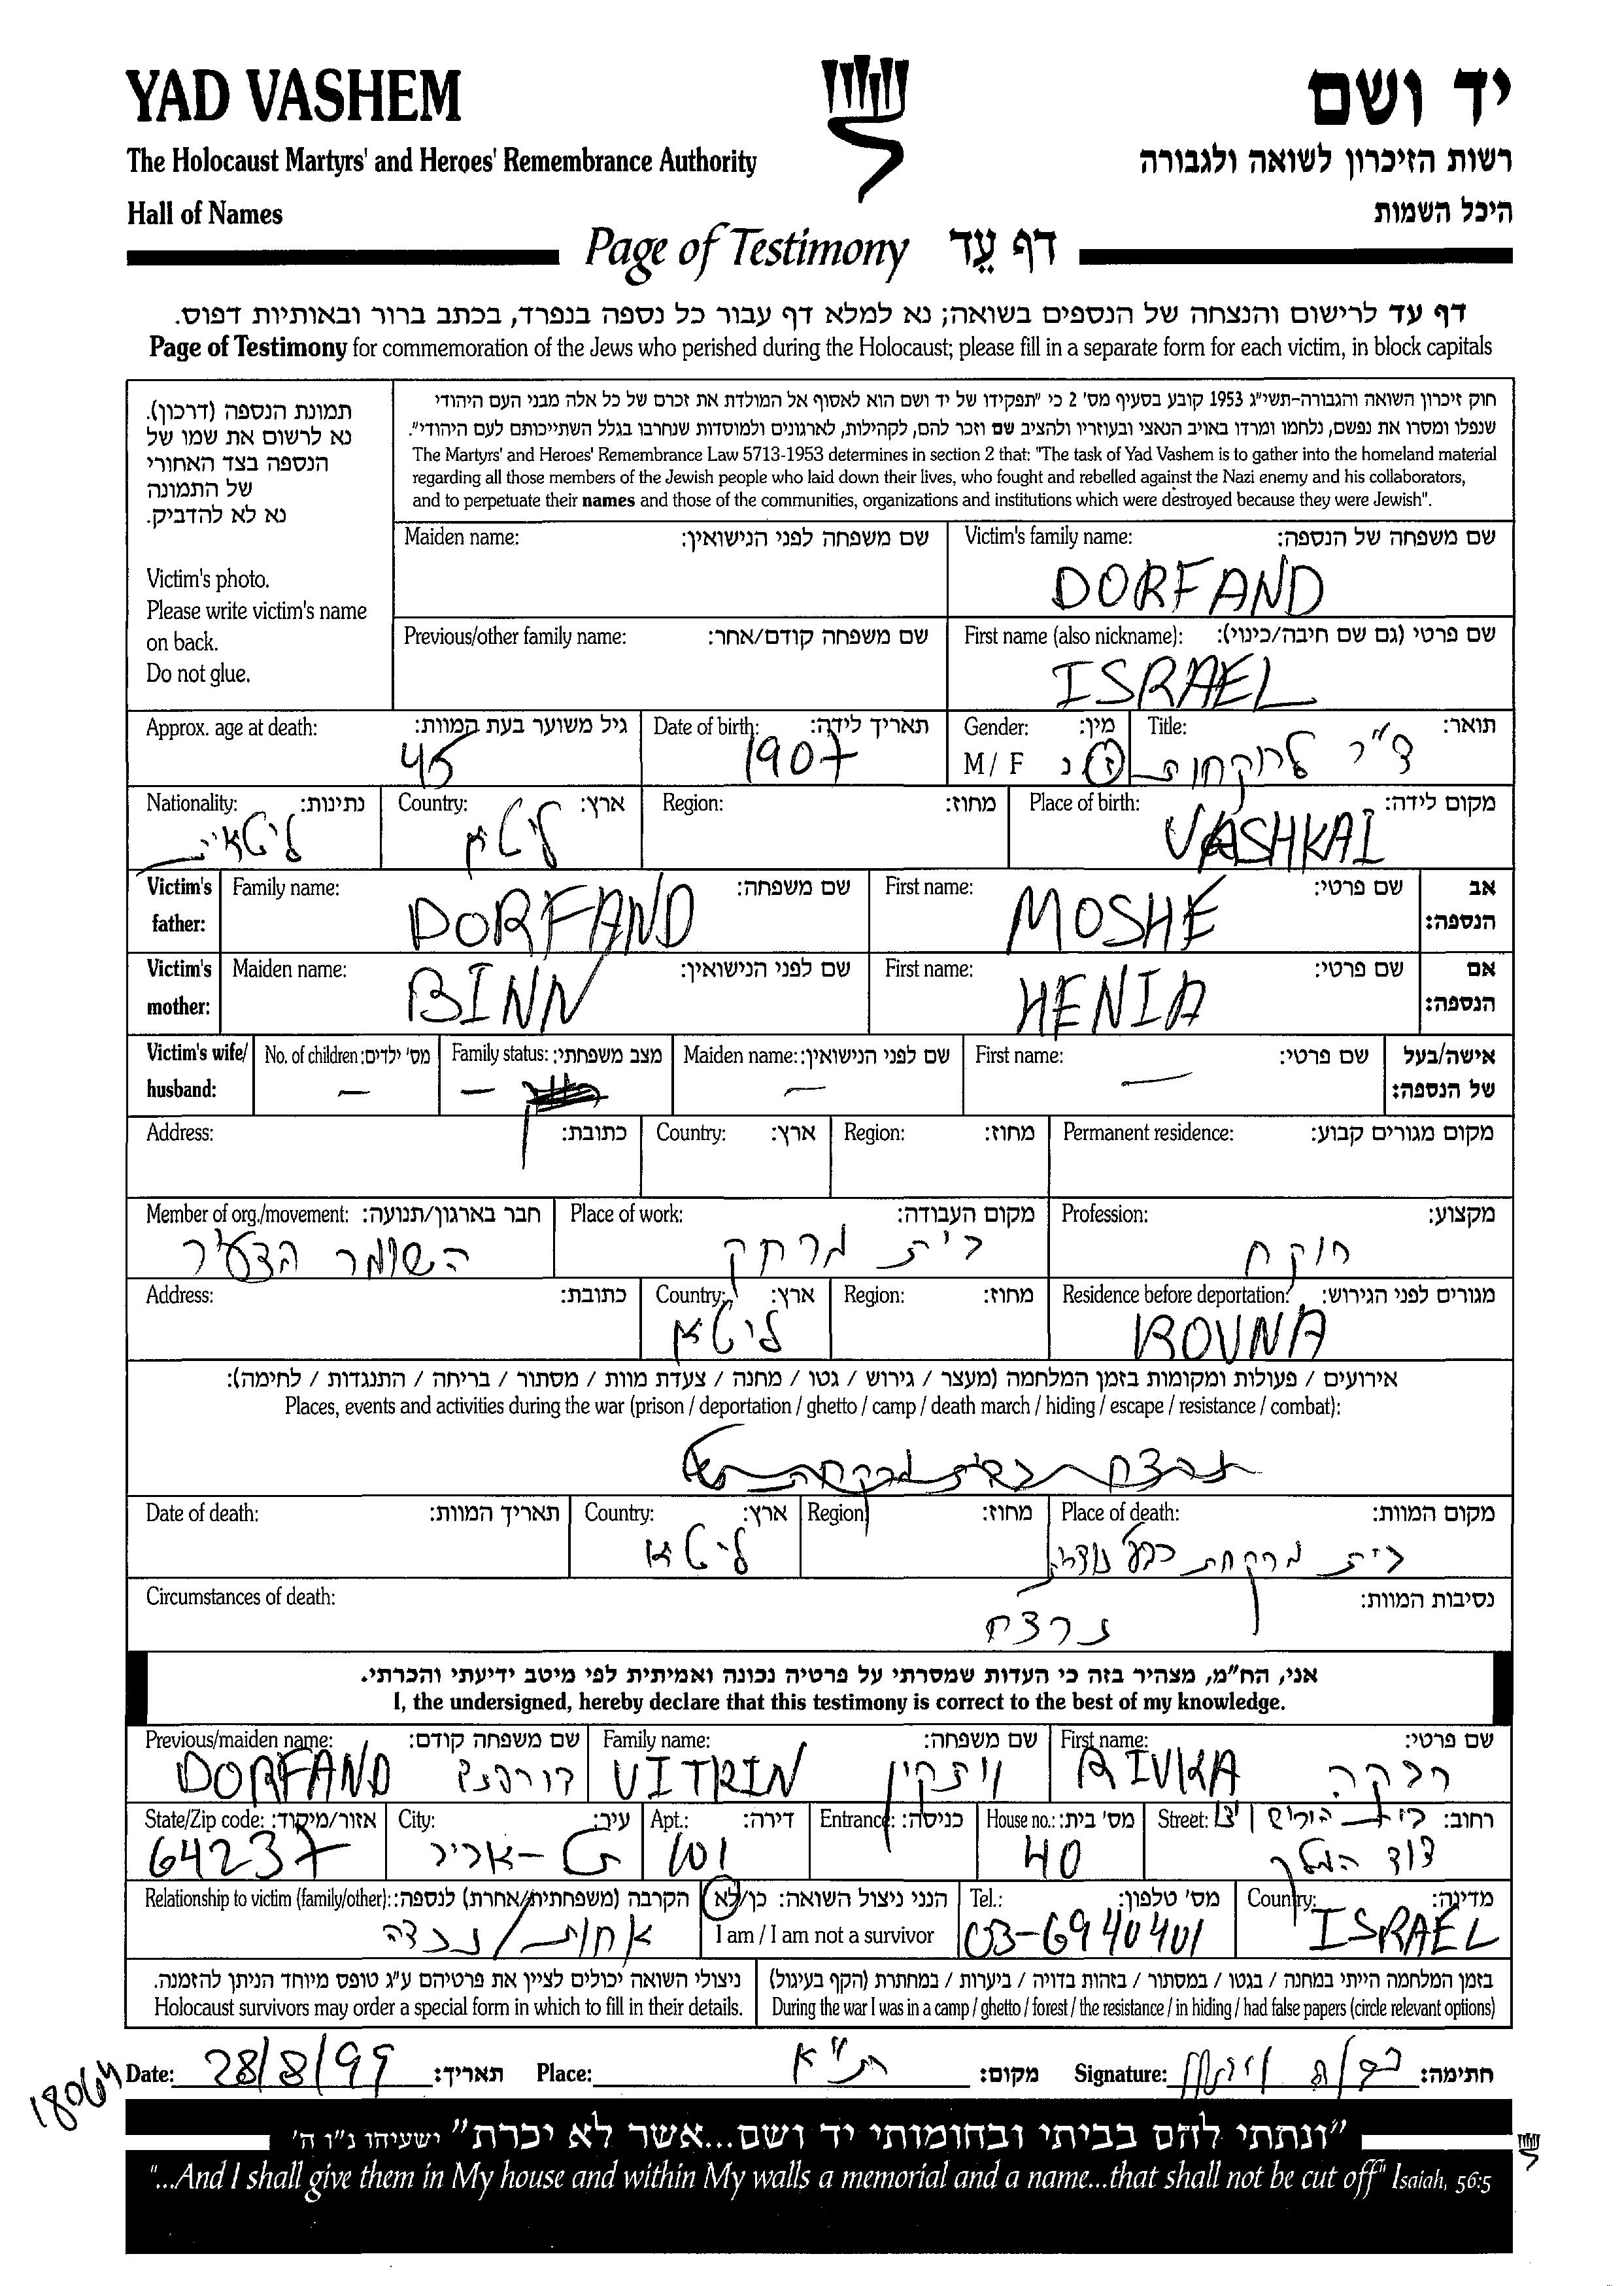 YAD VASHEM
יד ושם
The Holocaust Martyrs' and Heroes' Remembrance Authority
רשות הזיכרון לשואה ולגבורה
Hall of Names
היכל השמות
Page of Testimony דף עֵד
דף עד לרישום והנצחה של הנספים בשואה; נא למלא דף עבור כל נספה בנפרד, בכתב ברור ובאותיות דפוס.
Page of Testimony for commemoration of the Jews who perished during the Holocaust; please fill in a separate form for each victim, in block capitals
תמונת הנספה (דרכון).
נא לרשום את שמו של
הנספה בצד האחורי
של התמונה
נא לא להדביק.
Victim's photo.
Please write victim's name
on back.
Do not glue.
חוק זיכרון השואה והגבורה-תשי"ג 1953 קובע בסעיף מס' 2 כי "תפקידו של יד ושם הוא לאסוף אל המולדת את זכרם של כל אלה מבני העם היהודי
שנפלו ומסרו את נפשם, נלחמו ומרדו באויב הנאצי ובעוזריו ולהציב שם וזכר להם, לקהילות, לארגונים ולמוסדות שנחרבו בגלל השתייכותם לעם היהודי".
The Martyrs' and Heroes' Remembrance Law 5713-1953 determines in section 2 that: "The task of Yad Vashem is to gather into the homeland material
regarding all those members of the Jewish people who laid down their lives, who fought and rebelled against the Nazi enemy and his collaborators,
and to perpetuate their names and those of the communities, organizations and institutions which were destroyed because they were Jewish".
Maiden name: שם משפחה לפני הנישואין:
Victim's family name: שם משפחה של הנספה:
DORFAND
Previous/other family name: שם משפחה קודם/אחר:
First name (also nickname): שם פרטי (גם שם חיבה/כינוי):
ISRAEL
Approx. age at death: גיל משוער בעת המוות:
45
Date of birth: תאריך לידה:
1907
Gender: מין:
M / F ז נ
Title: תואר:
ד"ר לרוקחות
Nationality: נתינות:
ליטאית
Country: ארץ:
ליטא
Region: מחוז:
Place of birth: מקום לידה:
VASHKAI
Victim's father:
Family name: שם משפחה:
DORFAND
First name: שם פרטי:
MOSHE
אב הנספה:
Victim's mother:
Maiden name: שם לפני הנישואין:
BINN
First name: שם פרטי:
HENIA
אם הנספה:
Victim's wife/ husband:
No. of children: מס' ילדים:
—
Family status: מצב משפחתי:
—
Maiden name: שם לפני הנישואין:
—
First name: שם פרטי:
—
אישה/בעל של הנספה:
Address: כתובת:
Country: ארץ:
Region: מחוז:
Permanent residence: מקום מגורים קבוע:
Member of org./movement: חבר בארגון/תנועה:
השומר הצעיר
Place of work: מקום העבודה:
בית מרחק
Profession: מקצוע:
רוקח
Address: כתובת:
Country: ארץ:
ליטא
Region: מחוז:
Residence before deportation: מגורים לפני הגירוש:
ROVNA
אירועים / פעולות ומקומות בזמן המלחמה (מעצר / גירוש / גטו / מחנה / צעדת מוות / מסתור / בריחה / התנגדות / לחימה):
Places, events and activities during the war (prison / deportation / ghetto / camp / death march / hiding / escape / resistance / combat):
Date of death: תאריך המוות:
Country: ארץ:
ליטא
Region: מחוז:
Place of death: מקום המוות:
בית מרקחת
Circumstances of death: נסיבות המוות:
נרצח
אני, הח"מ, מצהיר בזה כי העדות שמסרתי על פרטיה נכונה ואמיתית לפי מיטב ידיעתי והכרתי.
I, the undersigned, hereby declare that this testimony is correct to the best of my knowledge.
Previous/maiden name: שם משפחה קודם:
DORFAND דורפנד
Family name: שם משפחה:
VITKIN ויתקין
First name: שם פרטי:
RIVKA רבקה
State/Zip code: אזור/מיקוד:
64237
City: עיר:
תל-אביב
Apt.: דירה:
101
Entrance: כניסה:
House no.: מס' בית:
40
Street: רחוב:
בית הורים
דוד המלך
Relationship to victim (family/other): הקרבה (משפחתית/אחרת) לנספה:
אחות/נכדה
הנני ניצול השואה: כן/לא
I am / I am not a survivor
Tel.: מס' טלפון:
03-6940401
Country: מדינה:
ISRAEL
ניצולי השואה יכולים לציין את פרטיהם ע"ג טופס מיוחד הניתן להזמנה.
Holocaust survivors may order a special form in which to fill in their details.
בזמן המלחמה הייתי במחנה / בגטו / במסתור / בזהות בדויה / ביערות / במחתרת (הקף בעיגול)
During the war I was in a camp / ghetto / forest / the resistance / in hiding / had false papers (circle relevant options)
18064
Date: 28/8/99 תאריך:
Place: ת"א מקום:
Signature: חתימה:
"ונתתי להם בביתי ובחומותי יד ושם...אשר לא יכרת" ישעיהו נ"ו ה'
"...And I shall give them in My house and within My walls a memorial and a name...that shall not be cut off" Isaiah, 56:5